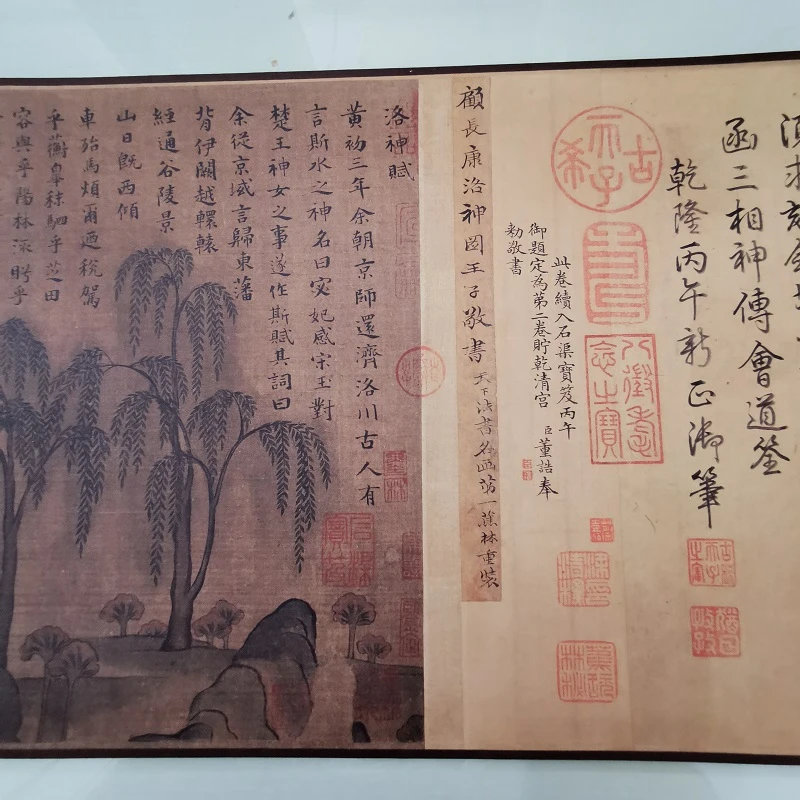 函三相神傳會道筌
乾隆丙午新正御筆
古希天子
壽
八徵耄念之寶
古稀天子之寶
猶日孜孜
此卷續入石渠寶笈丙午
御題定為第二卷貯乾清宮 臣董誥奉
勅敬書
顧長康洛神圖王子敬書 天下法書名画苐一蕉林重裝
洛神賦
黃初三年余朝京師還濟洛川古人有
言斯水之神名曰宓妃感宋玉對
楚王神女之事遂作斯賦其詞曰
余從京域言歸東藩
背伊闕越轘轅
經通谷陵景
山日既西傾
車殆馬煩爾迺稅駕
乎蘅皋秣駟乎芝田
容與乎陽林流眄乎
蕉林